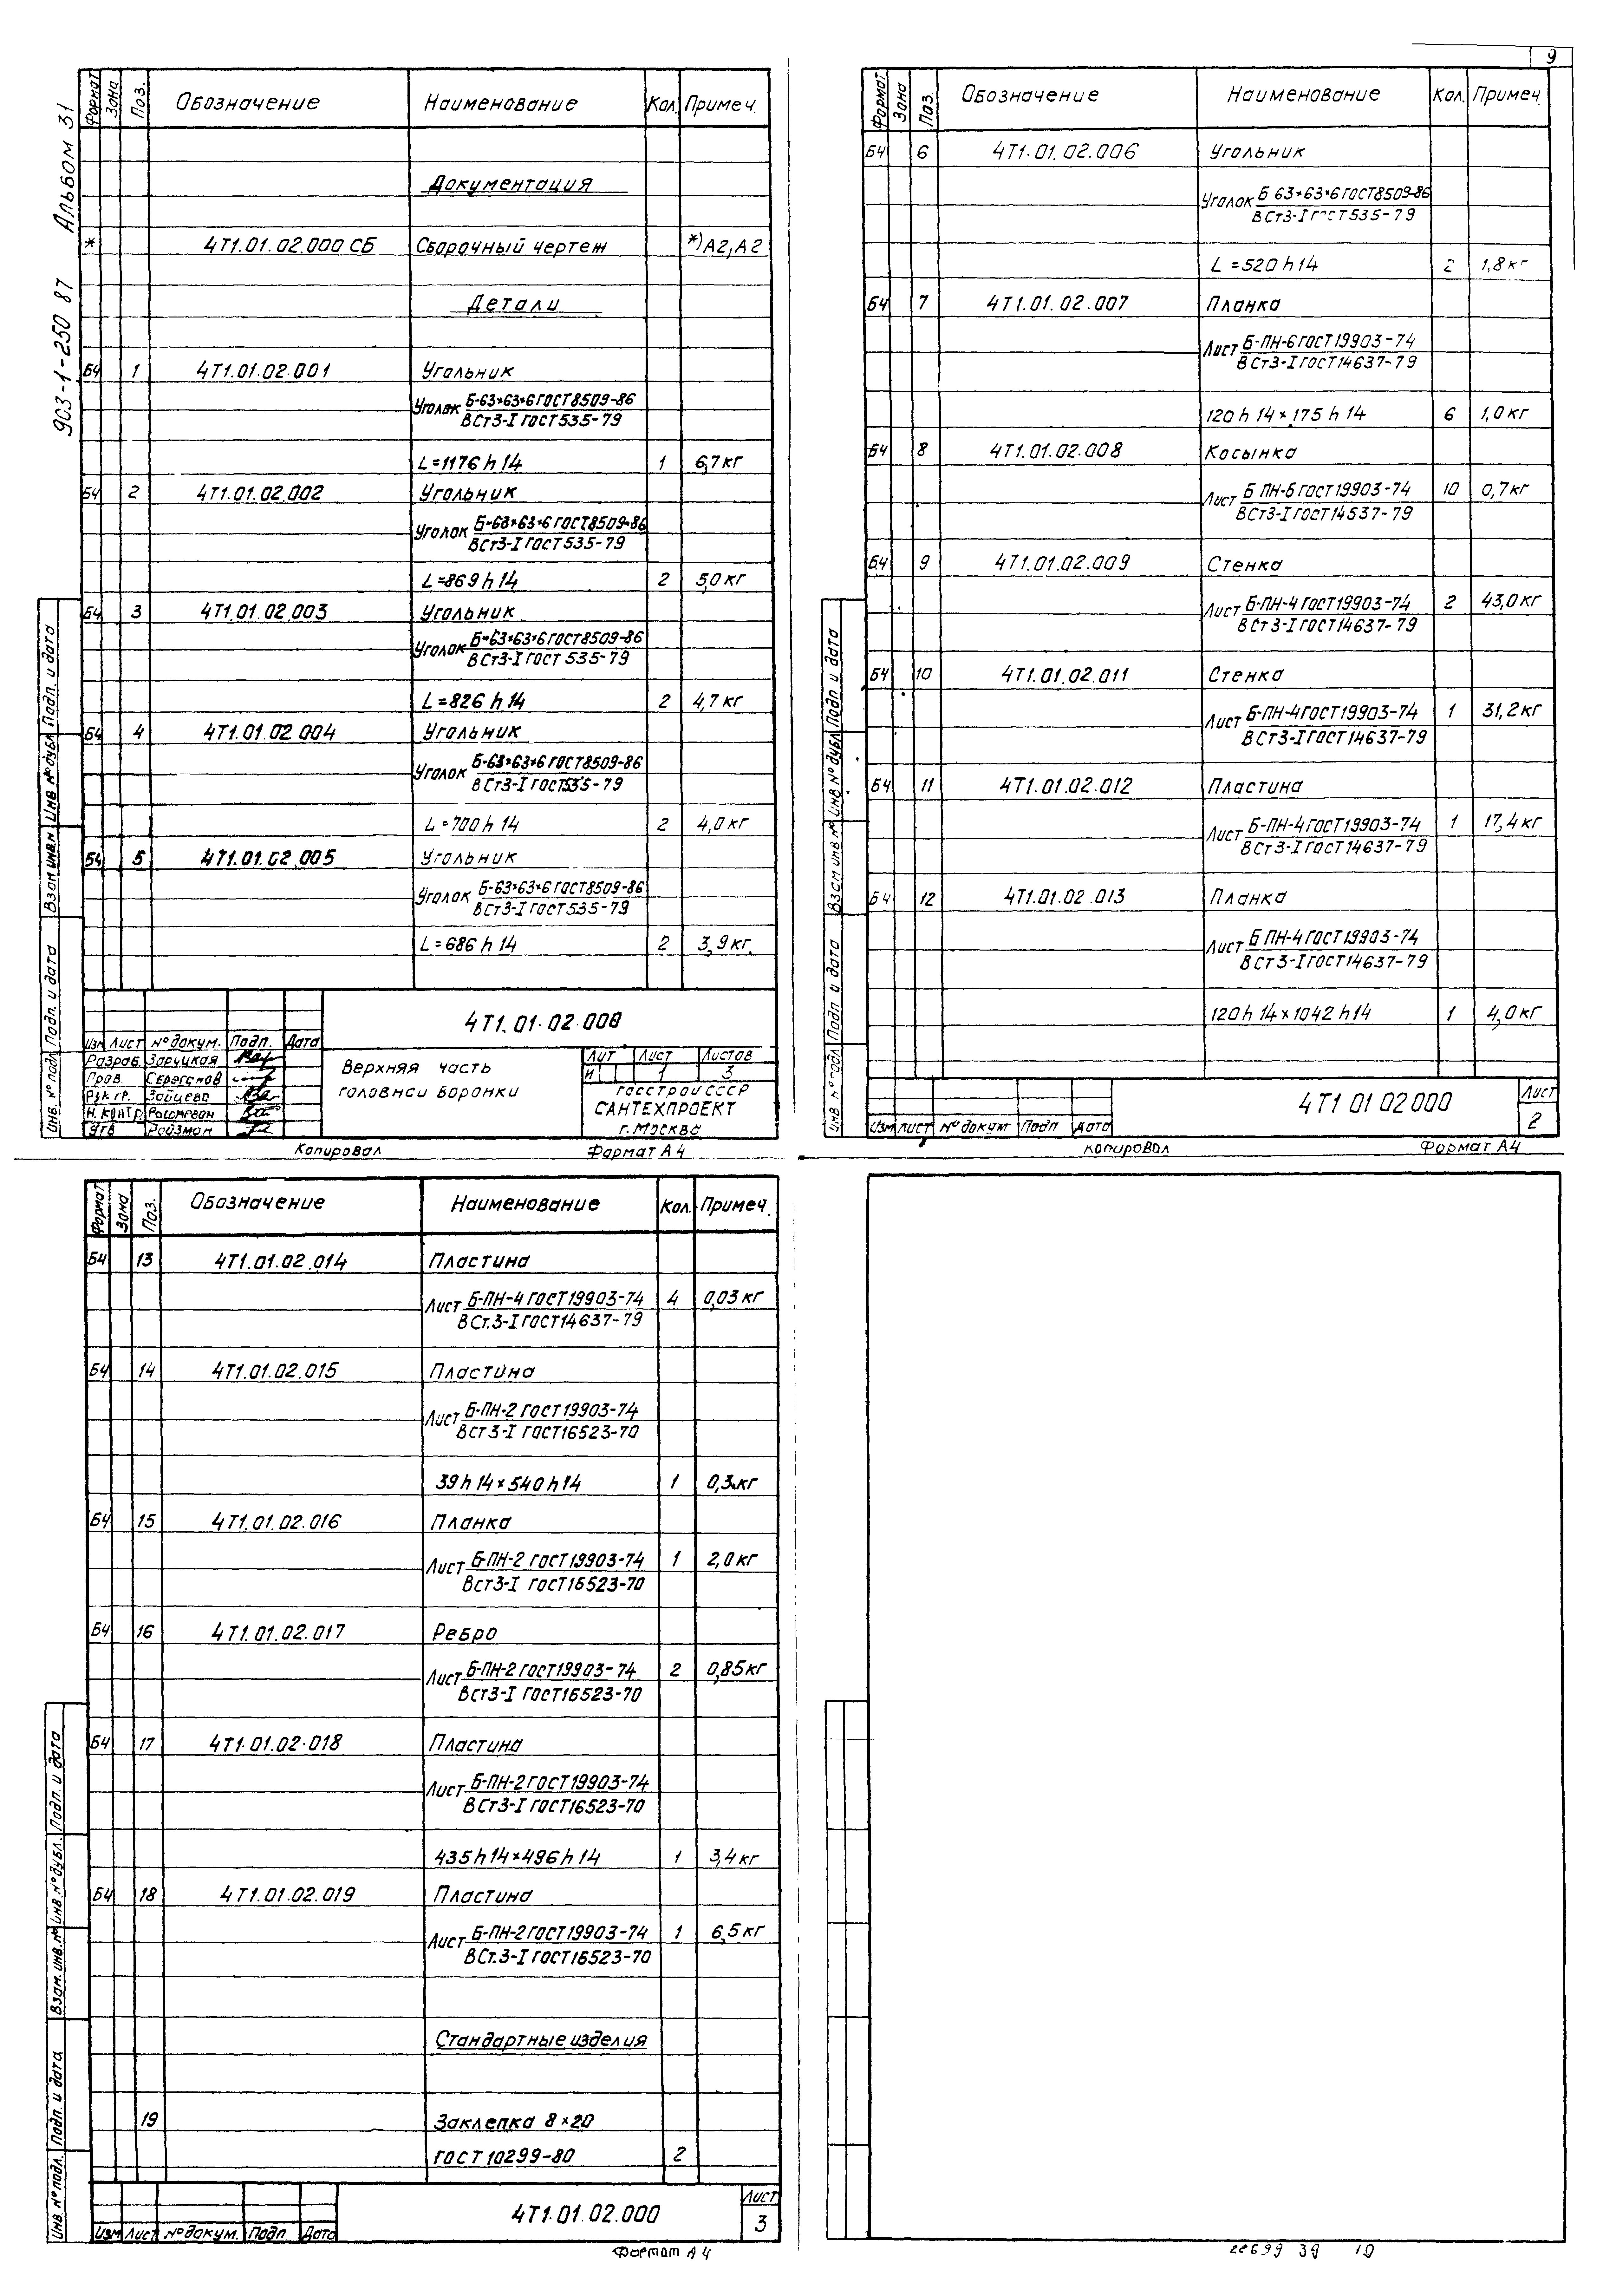 Альбом 31
903-1-250 87
Формат Зона Поз. Обозначение Наименование Кол. Примеч.
Документация
* 4Т1.01.02.000 СБ Сборочный чертеж *) А2, А2
Детали
Б4 1 4Т1.01.02.001 Угольник
Уголок Б-63×63×6 ГОСТ 8509-86
ВСт3-I ГОСТ 535-79
L=1176 h14 1 6,7 кг
Б4 2 4Т1.01.02.002 Угольник
Уголок Б-63×63×6 ГОСТ 8509-86
ВСт3-I ГОСТ 535-79
L=869 h14 2 5,0 кг
Б4 3 4Т1.01.02.003 Угольник
Уголок Б-63×63×6 ГОСТ 8509-86
ВСт3-I ГОСТ 535-79
L=826 h14 2 4,7 кг
Б4 4 4Т1.01.02.004 Угольник
Уголок Б-63×63×6 ГОСТ 8509-86
ВСт3-I ГОСТ 535-79
L=700 h14 2 4,0 кг
Б4 5 4Т1.01.02.005 Угольник
Уголок Б-63×63×6 ГОСТ 8509-86
ВСт3-I ГОСТ 535-79
L=686 h14 2 3,9 кг.
Инв. № подл. Подп. и дата Взам инв.№ Инв № дубл. Подп. и дата
4Т1.01.02.000
Изм Лист № докум. Подп. Дата
Разраб. Заруцкая
Пров.
Рук гр. Зайцева
Н. контр
Утв Ройзман
Верхняя часть
головной воронки
Лит Лист Листов
И 1 3
Госстрой СССР
САНТЕХПРОЕКТ
г. Москва
Копировал Формат А4
9
Формат Зона Поз. Обозначение Наименование Кол. Примеч.
Б4 6 4Т1.01.02.006 Угольник
Уголок Б 63×63×6 ГОСТ 8509-86
ВСт3-I ГОСТ 535-79
L=520 h14 2 1,8 кг
Б4 7 4Т1.01.02.007 Планка
Лист Б-ПН-6 ГОСТ 19903-74
ВСт3-I ГОСТ 14637-79
120 h14 × 175 h14 6 1,0 кг
Б4 8 4Т1.01.02.008 Косынка
Лист Б ПН-6 ГОСТ 19903-74 10 0,7 кг
ВСт3-I ГОСТ 14537-79
Б4 9 4Т1.01.02.009 Стенка
Лист Б-ПН-4 ГОСТ 19903-74 2 43,0 кг
ВСт3-I ГОСТ 14637-79
Б4 10 4Т1.01.02.011 Стенка
Лист Б-ПН-4 ГОСТ 19903-74 1 31,2 кг
ВСт3-I ГОСТ 14637-79
Б4 11 4Т1.01.02.012 Пластина
Лист Б-ПН-4 ГОСТ 19903-74 1 17,4 кг
ВСт3-I ГОСТ 14637-79
Б4 12 4Т1.01.02.013 Планка
Лист Б ПН-4 ГОСТ 19903-74
ВСт3-I ГОСТ 14637-79
120 h14 × 1042 h14 1 4,0 кг
Инв № подл Подп и дата Взам инв № Инв № дубл Подп и дата
4Т1 01 02 000
Лист
2
Изм Лист № докум Подп Дата
Копировал Формат А4
Формат Зона Поз. Обозначение Наименование Кол. Примеч.
Б4 13 4Т1.01.02.014 Пластина
Лист Б-ПН-4 ГОСТ 19903-74 4 0,03 кг
ВСт.3-I ГОСТ 14637-79
Б4 14 4Т1.01.02.015 Пластина
Лист Б-ПН-2 ГОСТ 19903-74
ВСт3-I ГОСТ 16523-70
39 h14 × 540 h14 1 0,3 кг
Б4 15 4Т1.01.02.016 Планка
Лист Б-ПН-2 ГОСТ 19903-74 1 2,0 кг
ВСт3-I ГОСТ 16523-70
Б4 16 4Т1.01.02.017 Ребро
Лист Б-ПН-2 ГОСТ 19903-74 2 0,85 кг
ВСт3-I ГОСТ 16523-70
Б4 17 4Т1.01.02.018 Пластина
Лист Б-ПН-2 ГОСТ 19903-74
ВСт3-I ГОСТ 16523-70
435 h14 × 496 h14 1 3,4 кг
Б4 18 4Т1.01.02.019 Пластина
Лист Б-ПН-2 ГОСТ 19903-74 1 6,5 кг
ВСт.3-I ГОСТ 16523-70
Стандартные изделия
19 Заклепка 8×20
ГОСТ 10299-80 2
Инв № подл. Подп. и дата Взам. инв. № Инв. № дубл. Подп. и дата
4Т1.01.02.000
Лист
3
Изм Лист № докум. Подп. Дата
Формат А4
22699 39 10